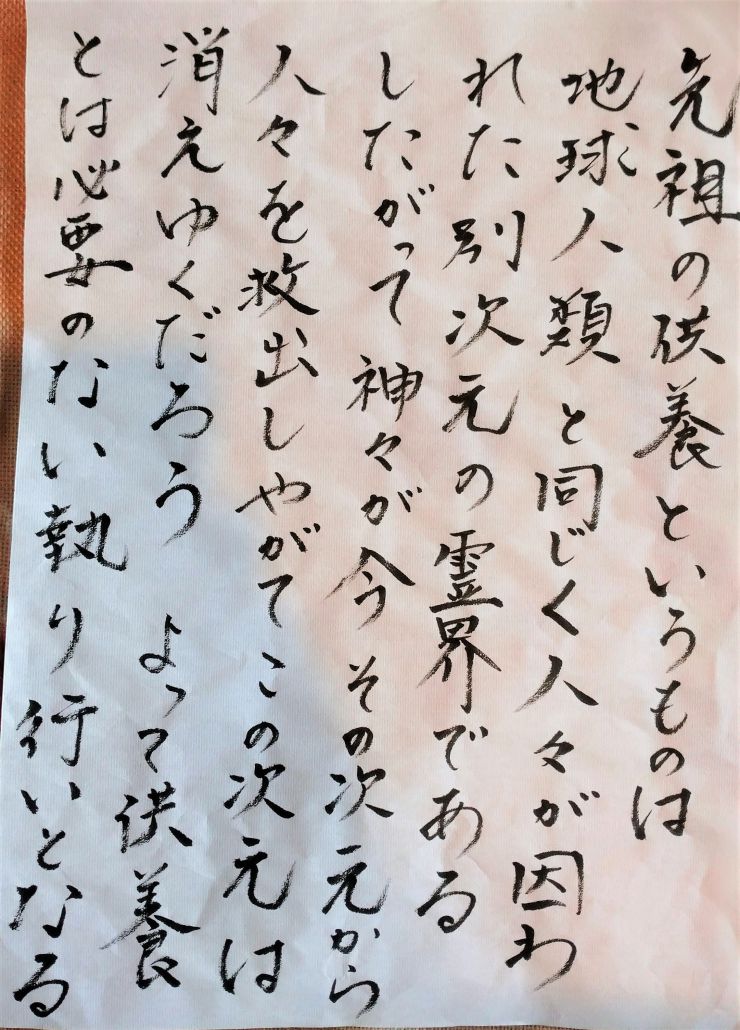 先祖の供養というものは
地球人類と同じく人々が因わ
れた別次元の霊界である
したがって神々が今その次元から
人々を救出しやがてこの次元は
消えゆくだろう よって供養
とは必要のない執り行いとなる